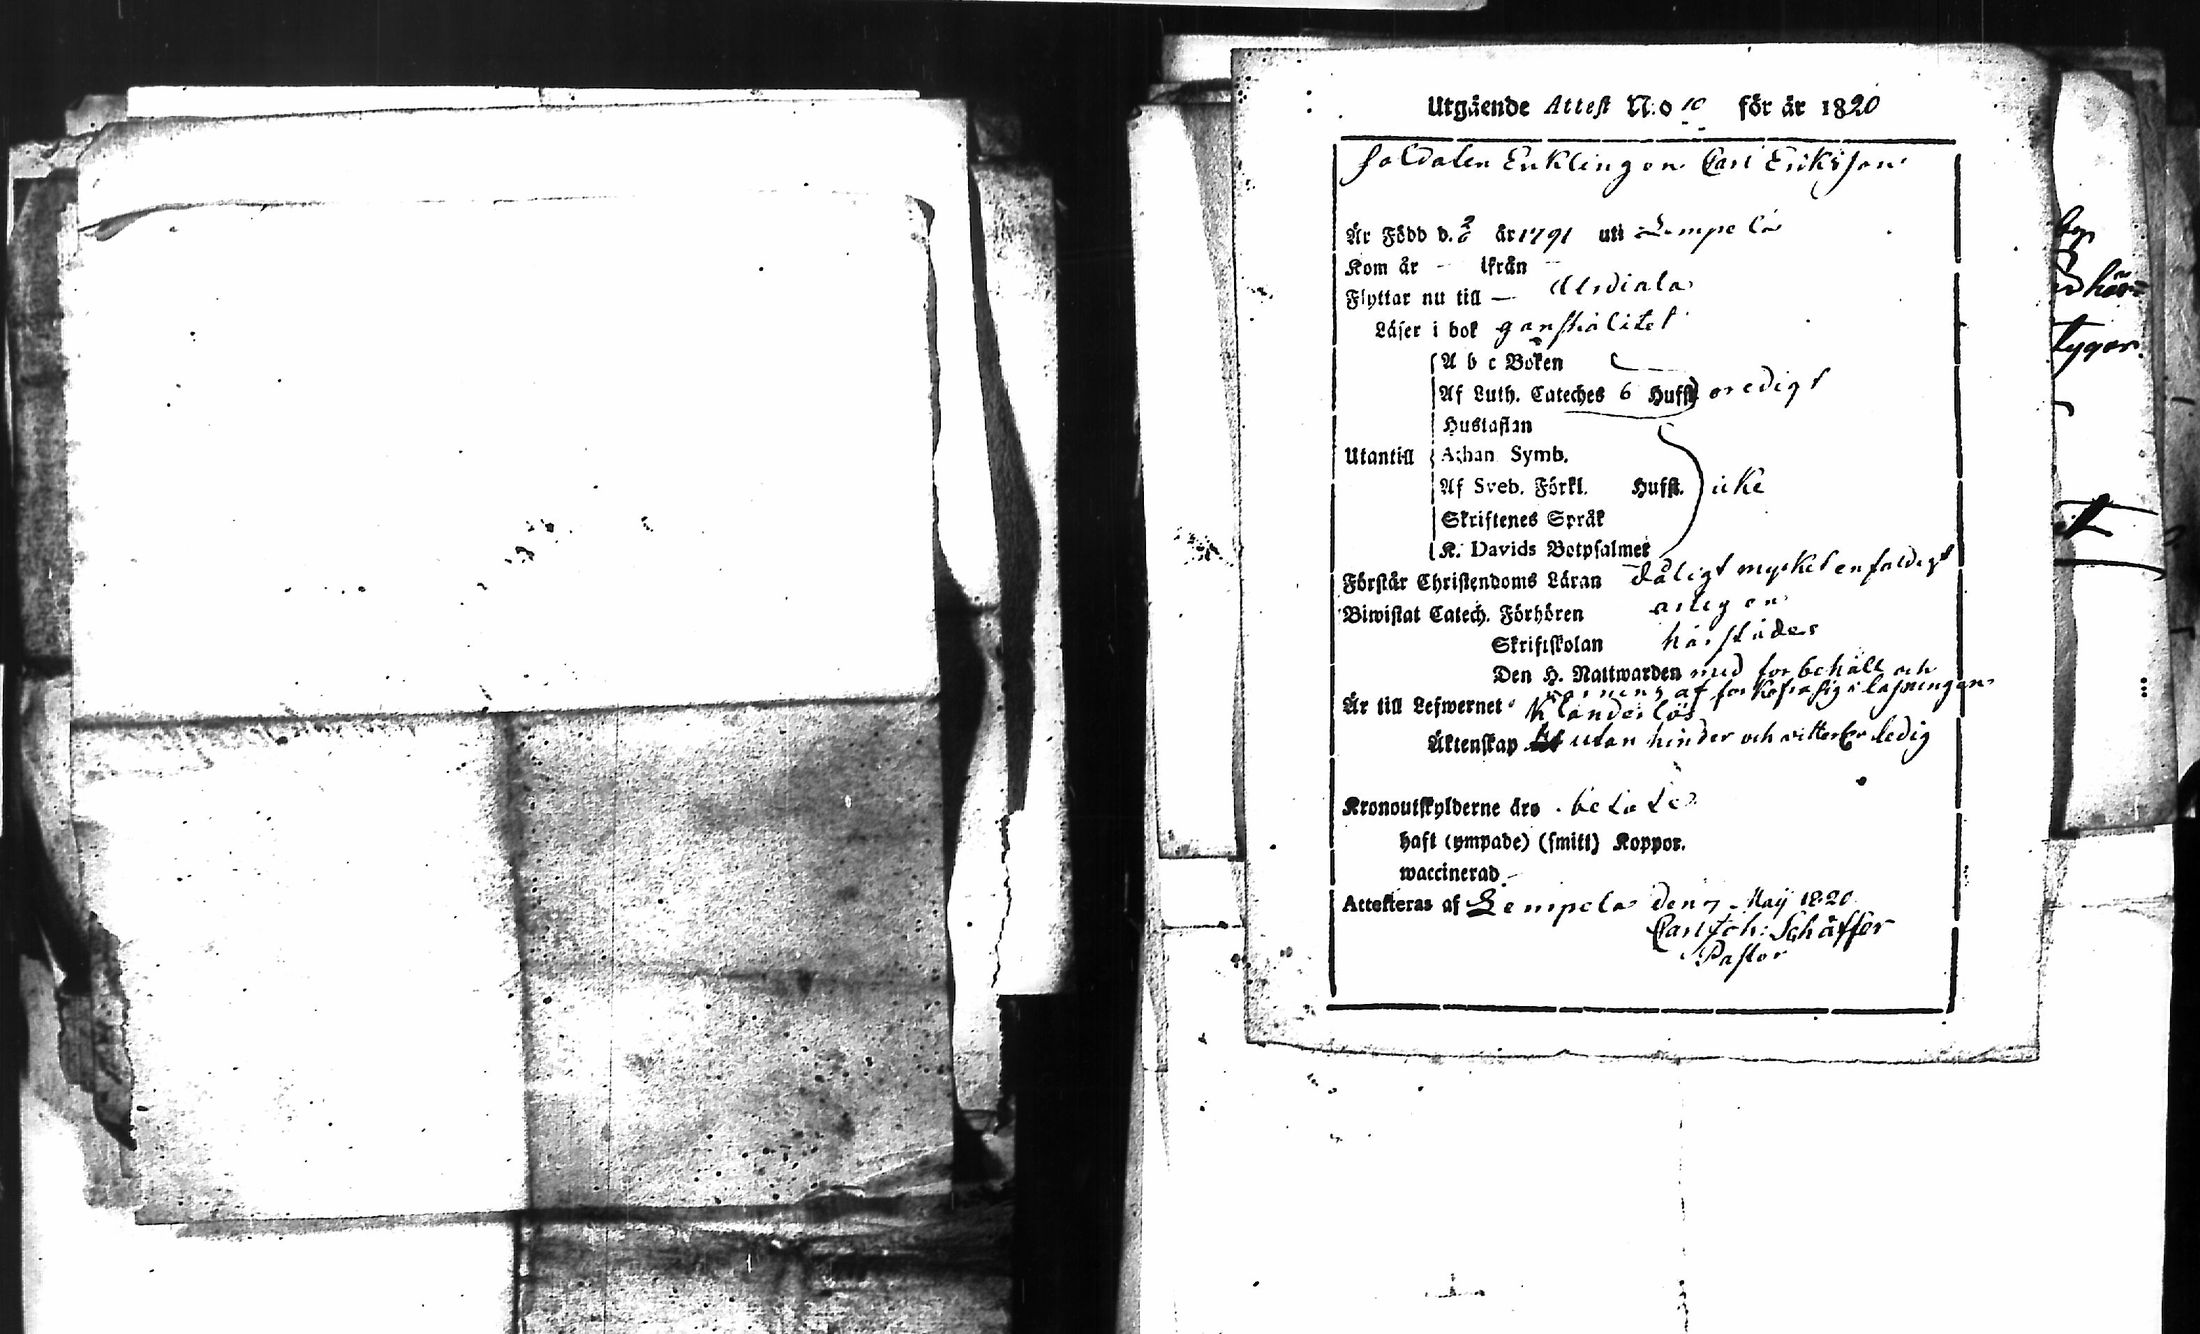 Utgående Attest N:o 10 för år 1820
Soldaten Enklingen Carl Eriksson
Är Född d. 2/6 år 1791 uti Lempelä
Kom år – ifrån –
Flyttar nu till — Urdiala
Läser i bok ganska litet
A b c Boken
Af Luth. Cateches 6 Hufst. oredigt
Hustaflan
Utantill Athan. Symb.
Af Sveb. Förkl. Hufst. icke
Skriftenes Språk
K. Davids Botpsalmer
Förstår Christendoms Läran dåligt mycket enfaldigt
Biwistat Catech. Förhören
Skriftskolan härstädes
Den H. Nattwarden med förbehåll och
af läsningen
Är till Lefwernet Klanderlös
Äktenskap utan hinder och ledig
Kronoutskylderne äro betalte
haft (ympade) (smitt) Koppor.
waccinerad –
Attesteras af Lempelä den 7 Maij 1820
Carl Joh: Schäffer
Pastor
tygar